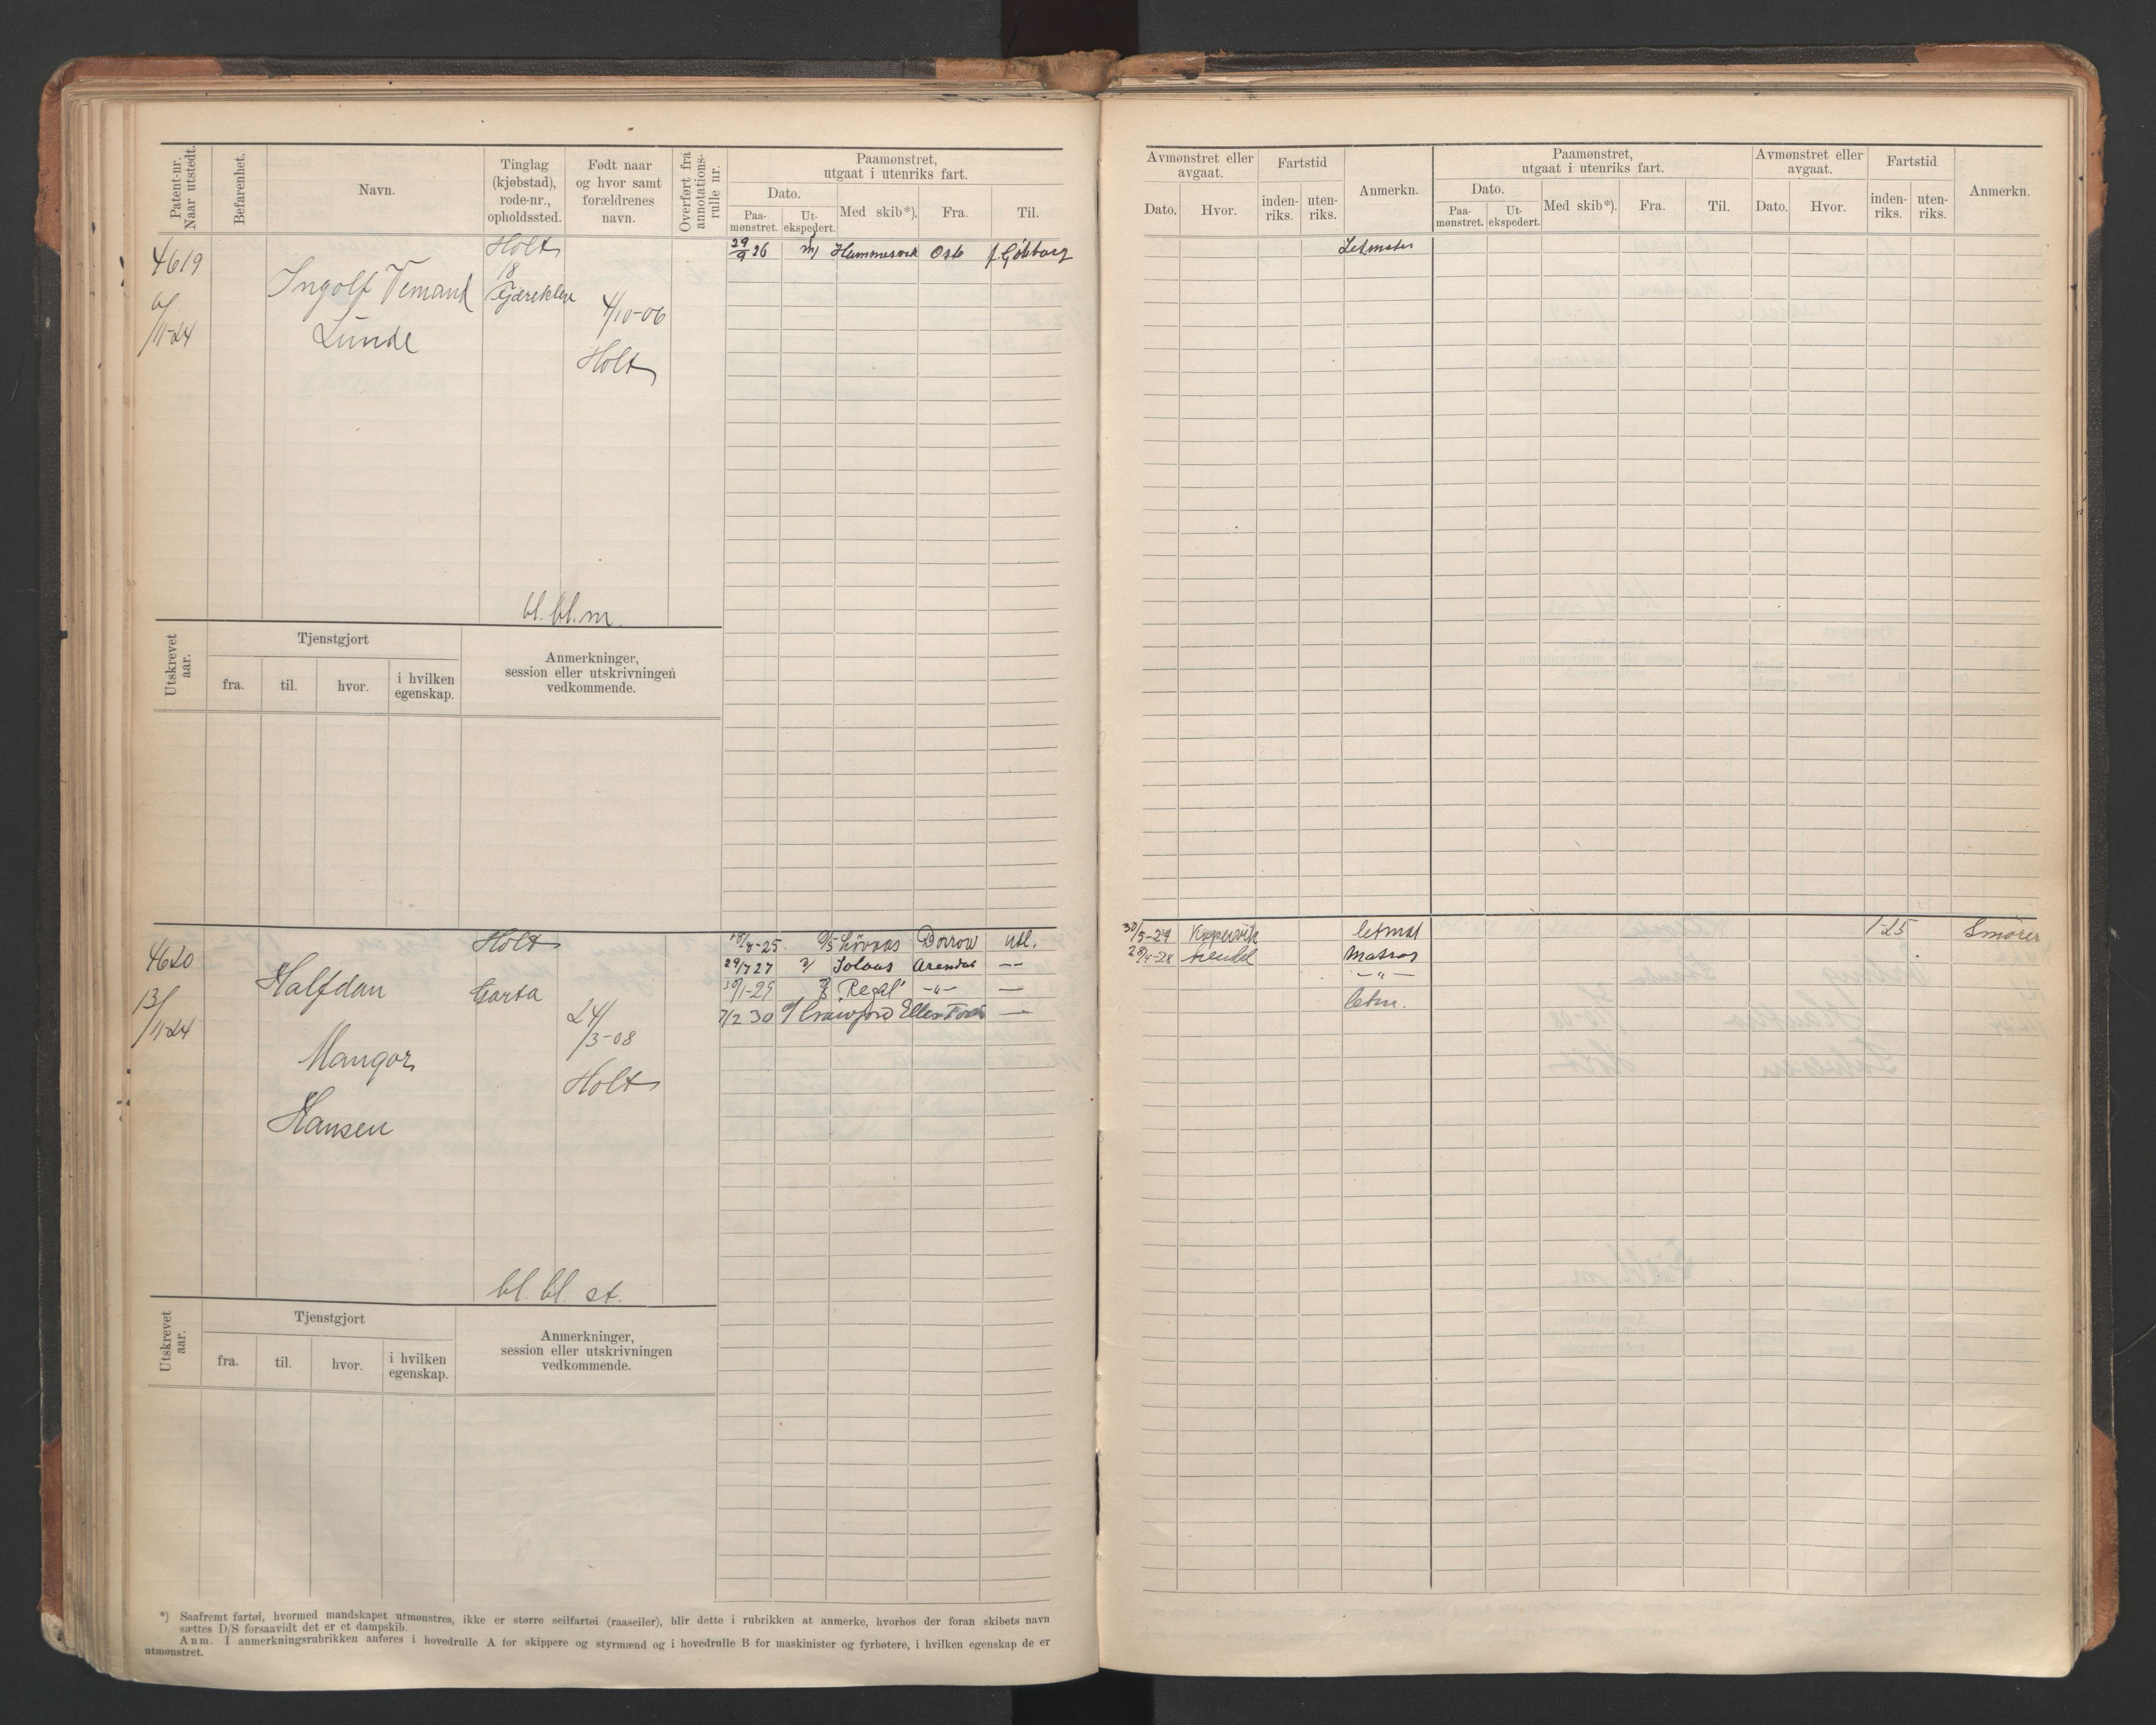 Patent-nr. Naar utstedt.
Befarenhet.
Navn.
Tinglag (kjøbstad), rode-nr., opholdssted.
Født naar og hvor samt forældrenes navn.
Overført fra annotations-rulle nr.
Paamønstret, utgaat i utenriks fart.
Dato.
Paa-mønstret.
Ut-ekspedert.
Med skib*).
Fra.
Til.
Avmønstret eller avgaat.
Dato.
Hvor.
Fartstid
inden-riks.
uten-riks.
Anmerkn.
Paamønstret, utgaat i utenriks fart.
Dato.
Paa-mønstret.
Ut-ekspedert.
Med skib*).
Fra.
Til.
Avmønstret eller avgaat.
Dato.
Hvor.
Fartstid
inden-riks.
uten-riks.
Anmerkn.
4619
6/11-24
Ingolf
Lunde
Holt
18
4/10-06
Holt
29/9 26
bl. bl. m.
Utskrevet aar.
Tjenstgjort
fra.
til.
hvor.
i hvilken egenskap.
Anmerkninger, session eller utskrivningen vedkommende.
4620
13/11-24
Halfdan
Mangor
Hansen
Holt
Garta
24/3-08
Holt
-25 utl. 30/5-29 letmat 1-25 Smører
29/7 27 Arendal — 28/4-28 Matros
-29 "Regal" -"- — -"-
7/2 30 — letm.
bl. bl. st.
Utskrevet aar.
Tjenstgjort
fra.
til.
hvor.
i hvilken egenskap.
Anmerkninger, session eller utskrivningen vedkommende.
*) Saafremt fartøi, hvormed mandskapet utmønstres, ikke er større seilfartøi (raaseiler), blir dette i rubrikken at anmerke, hvorhos der foran skibets navn
sættes D/S forsaavidt det er et dampskib.
Anm. I anmerkningsrubrikken anføres i hovedrulle A for skippere og styrmænd og i hovedrulle B for maskinister og fyrbøtere, i hvilken egenskap de er
utmønstret.